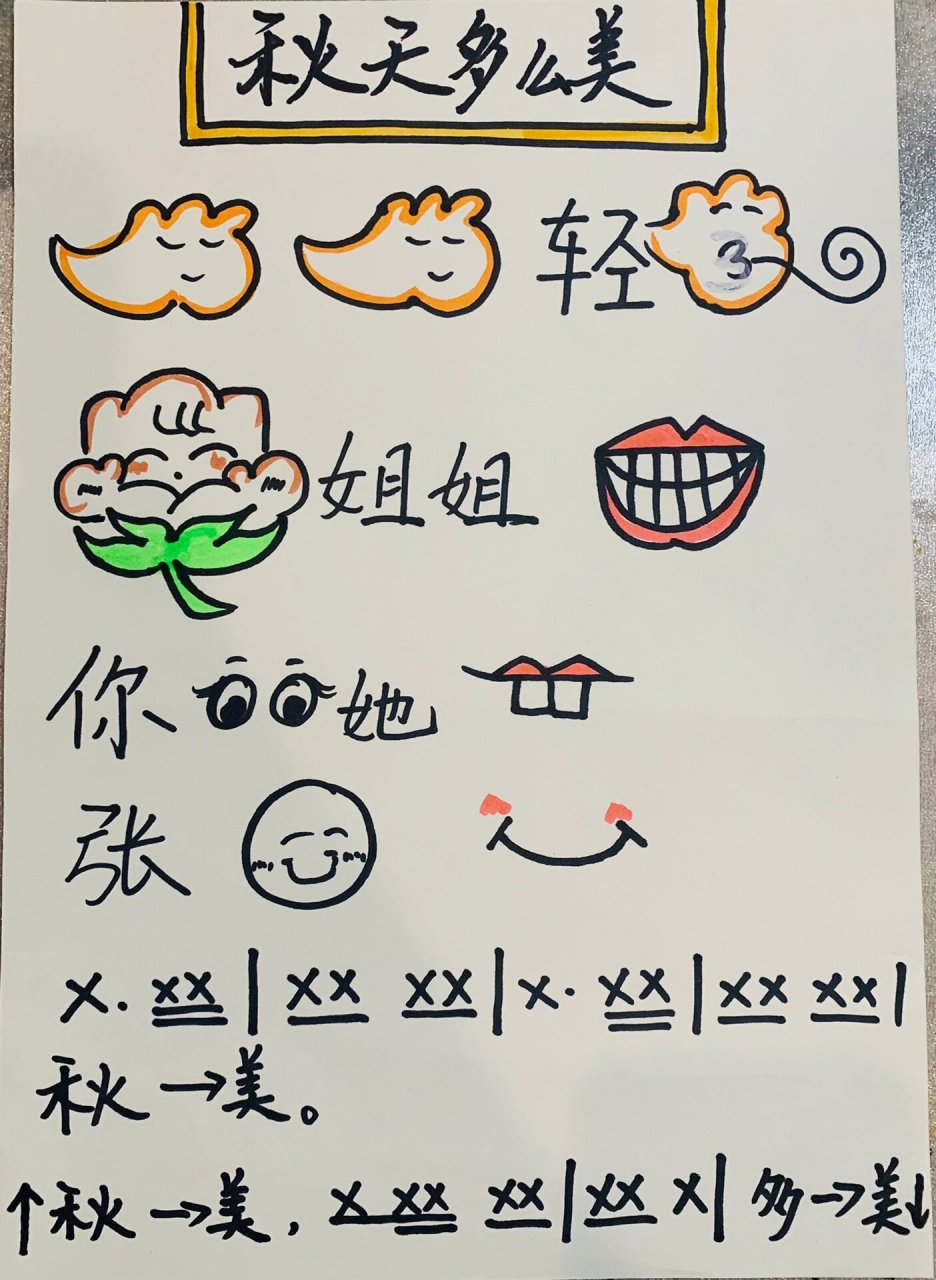 秋天多么美
轻 3
姐姐
你 她
张
X. XX | XX XX | X. XX | XX XX |
秋→美。
↑秋→美, X XX XX | XX X | 多→美↓